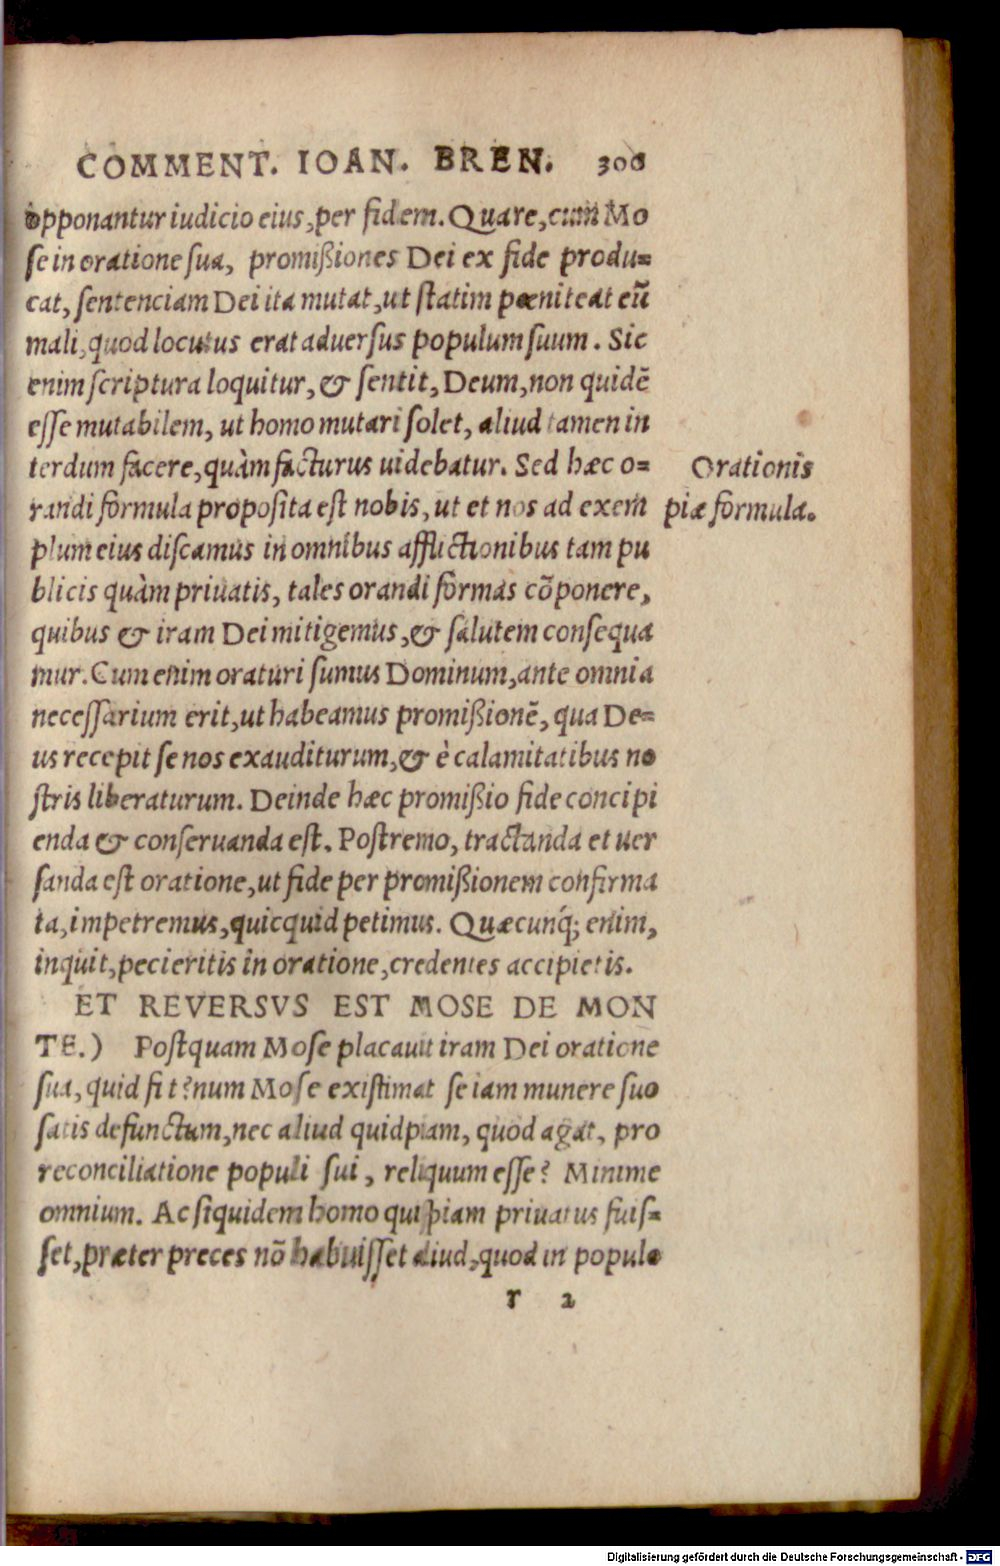 COMMENT. IOAN. BREN. 306
opponantur iudicio eius, per fidem. Quare, cum Mo
se in oratione sua, promißiones Dei ex fide produ=
cat, sentenciam Dei ita mutat, ut statim pœniteat eū
mali, quod locutus erat aduersus populum suum. Sic
enim scriptura loquitur, & sentit, Deum, non quidē
esse mutabilem, ut homo mutari solet, aliud tamen in
terdum facere, quàm facturus uidebatur. Sed hæc o=
randi formula proposita est nobis, ut et nos ad exem
plum eius discamus in omnibus afflictionibus tam pu
blicis quàm priuatis, tales orandi formas cōponere,
quibus & iram Dei mitigemus, & salutem consequa
mur. Cum enim oraturi sumus Dominum, ante omnia
necessarium erit, ut habeamus promißionē, qua De=
us recepit se nos exauditurum, & è calamitatibus no
stris liberaturum. Deinde hæc promißio fide concipi
enda & conseruanda est. Postremo, tractanda et uer
sanda est oratione, ut fide per promißionem confirma
ta, impetremus, quicquid petimus. Quæcunq; enim,
inquit, pecieritis in oratione, credentes accipietis.
ET REVERSVS EST MOSE DE MON
TE.) Postquam Mose placauit iram Dei oratione
sua, quid fit? num Mose existimat se iam munere suo
satis defunctum, nec aliud quidpiam, quod agat, pro
reconciliatione populi sui, reliquum esse? Minime
omnium. Ac siquidem homo quipiam priuatus fuis=
set, præter preces nō habuisset aliud, quod in populo
r 2
Orationis
piæ formula.
Digitalisierung gefördert durch die Deutsche Forschungsgemeinschaft - DFG